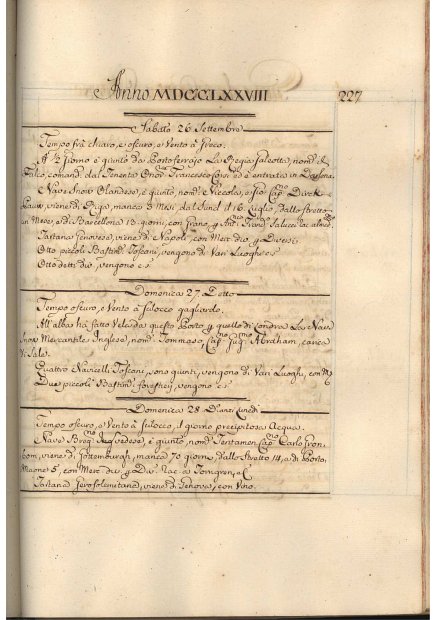 Anno MDCCLXXVIII 227
Sabato 26 Settembre
Tempo frà chiaro, e oscuro, e Vento à Greco.
A ½ giorno è giunto da Portoferrajo La Regia Galeotta, nom: il
Falco, comand: dal Tenente Francesco ed è entrata in Darsena
Nave Snow Olandese, è giunta, nom: Niccola, e Cap: Dirck
viene di Riga, manca 3 Mesi, dal Sund il 16 Luglio, dallo Stretto
un Mese, e di Barcellona 13 giorni, con Grano, Saluci
Tartana Genovese, viene di Napoli, con Merc: div: p Diversi
Otto piccoli Bastim: Toscani, vengono di Vari Luoghi
Otto detti div: vengono
Domenica 27 Detto
Tempo oscuro, e Vento à Scilocco gagliardo.
All'alba hà fatto Vela da questo Porto p quello di Londra La Nave
Snow Mercantile Inglese, nom: Tommaso, Cap: Abraham, carica
di Sale.
Quattro Navicelli Toscani, sono giunti, vengono di Vari Luoghi, con
Due piccoli Bastim: forestieri, vengono
Domenica 28 D: anzi Lunedì
Tempo oscuro, e Vento à Scilocco, il giorno precipitosa Acqua.
Nave è giunta, nom: Cap: Carlo
viene di manca 70 giorni, dallo Stretto 14, e di Porto
Maone 5, con Merc: div: p Div: Rac: à
Tartana Gerosolimitana, viene di Genova, con Vino.